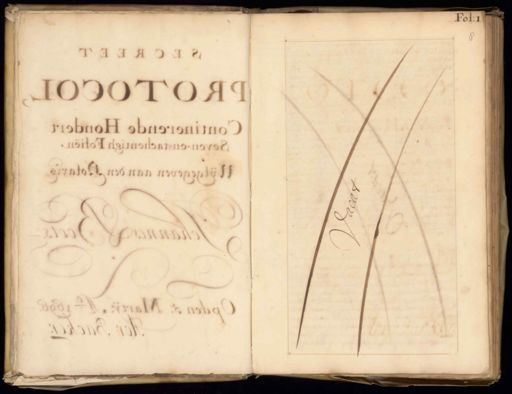 SECREET
PROTOCOL,
Continerende Hondert
Seven-en-tachentigh Folien.
Uijtgegeven aan den Notaris
Johannes Beets
Op den 8. Martij. Aº. 1686
Fol: 1
8
Vacat